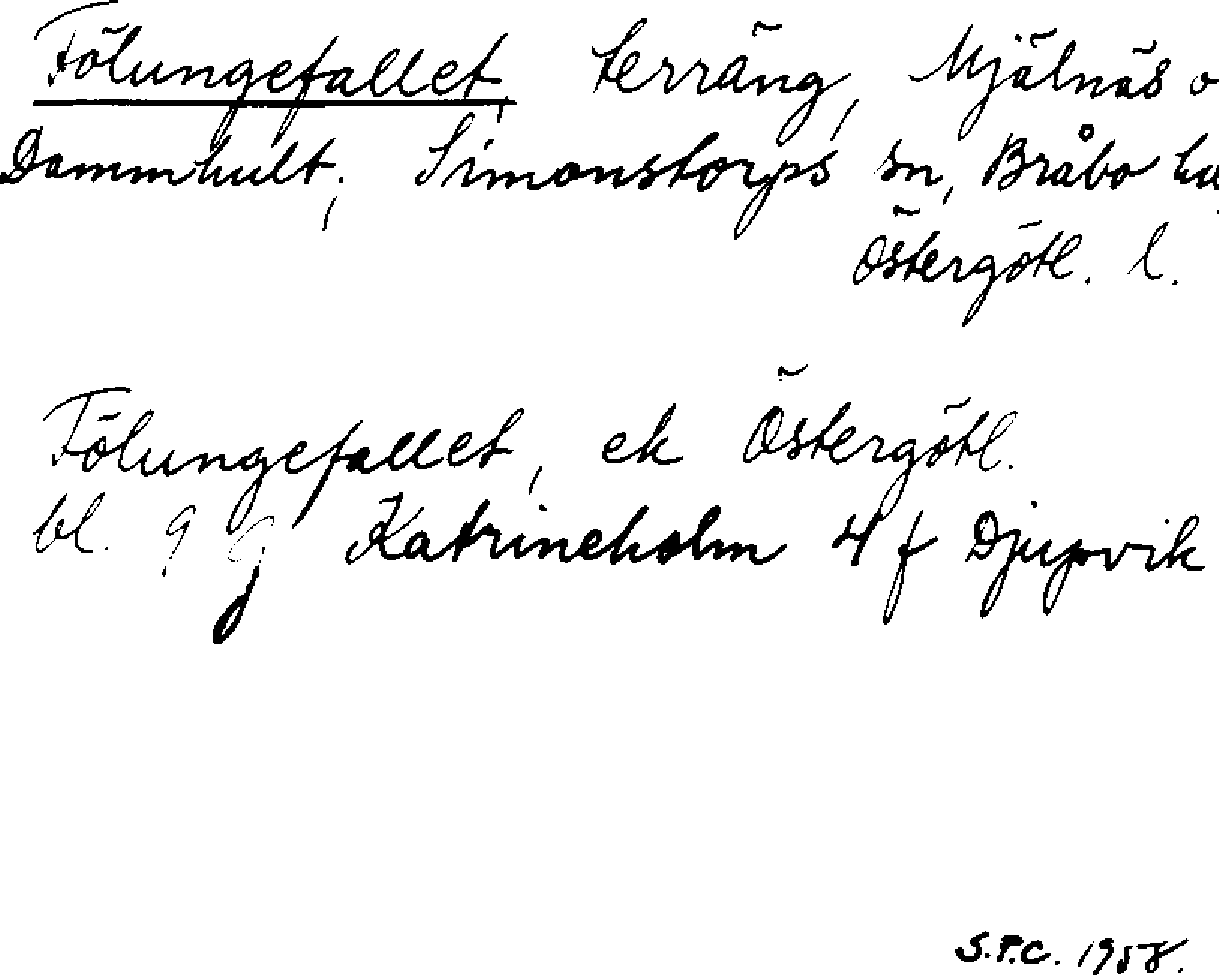 Fölungefallet, terräng, Mjälnäs o
Dammhult; Simonstorps sn, Bråbo
Östergötl. l.
Fölungefallet, ek Östergötl.
bl. 9 g Katrineholm 4 f Djupvik
S.P.C. 1958.